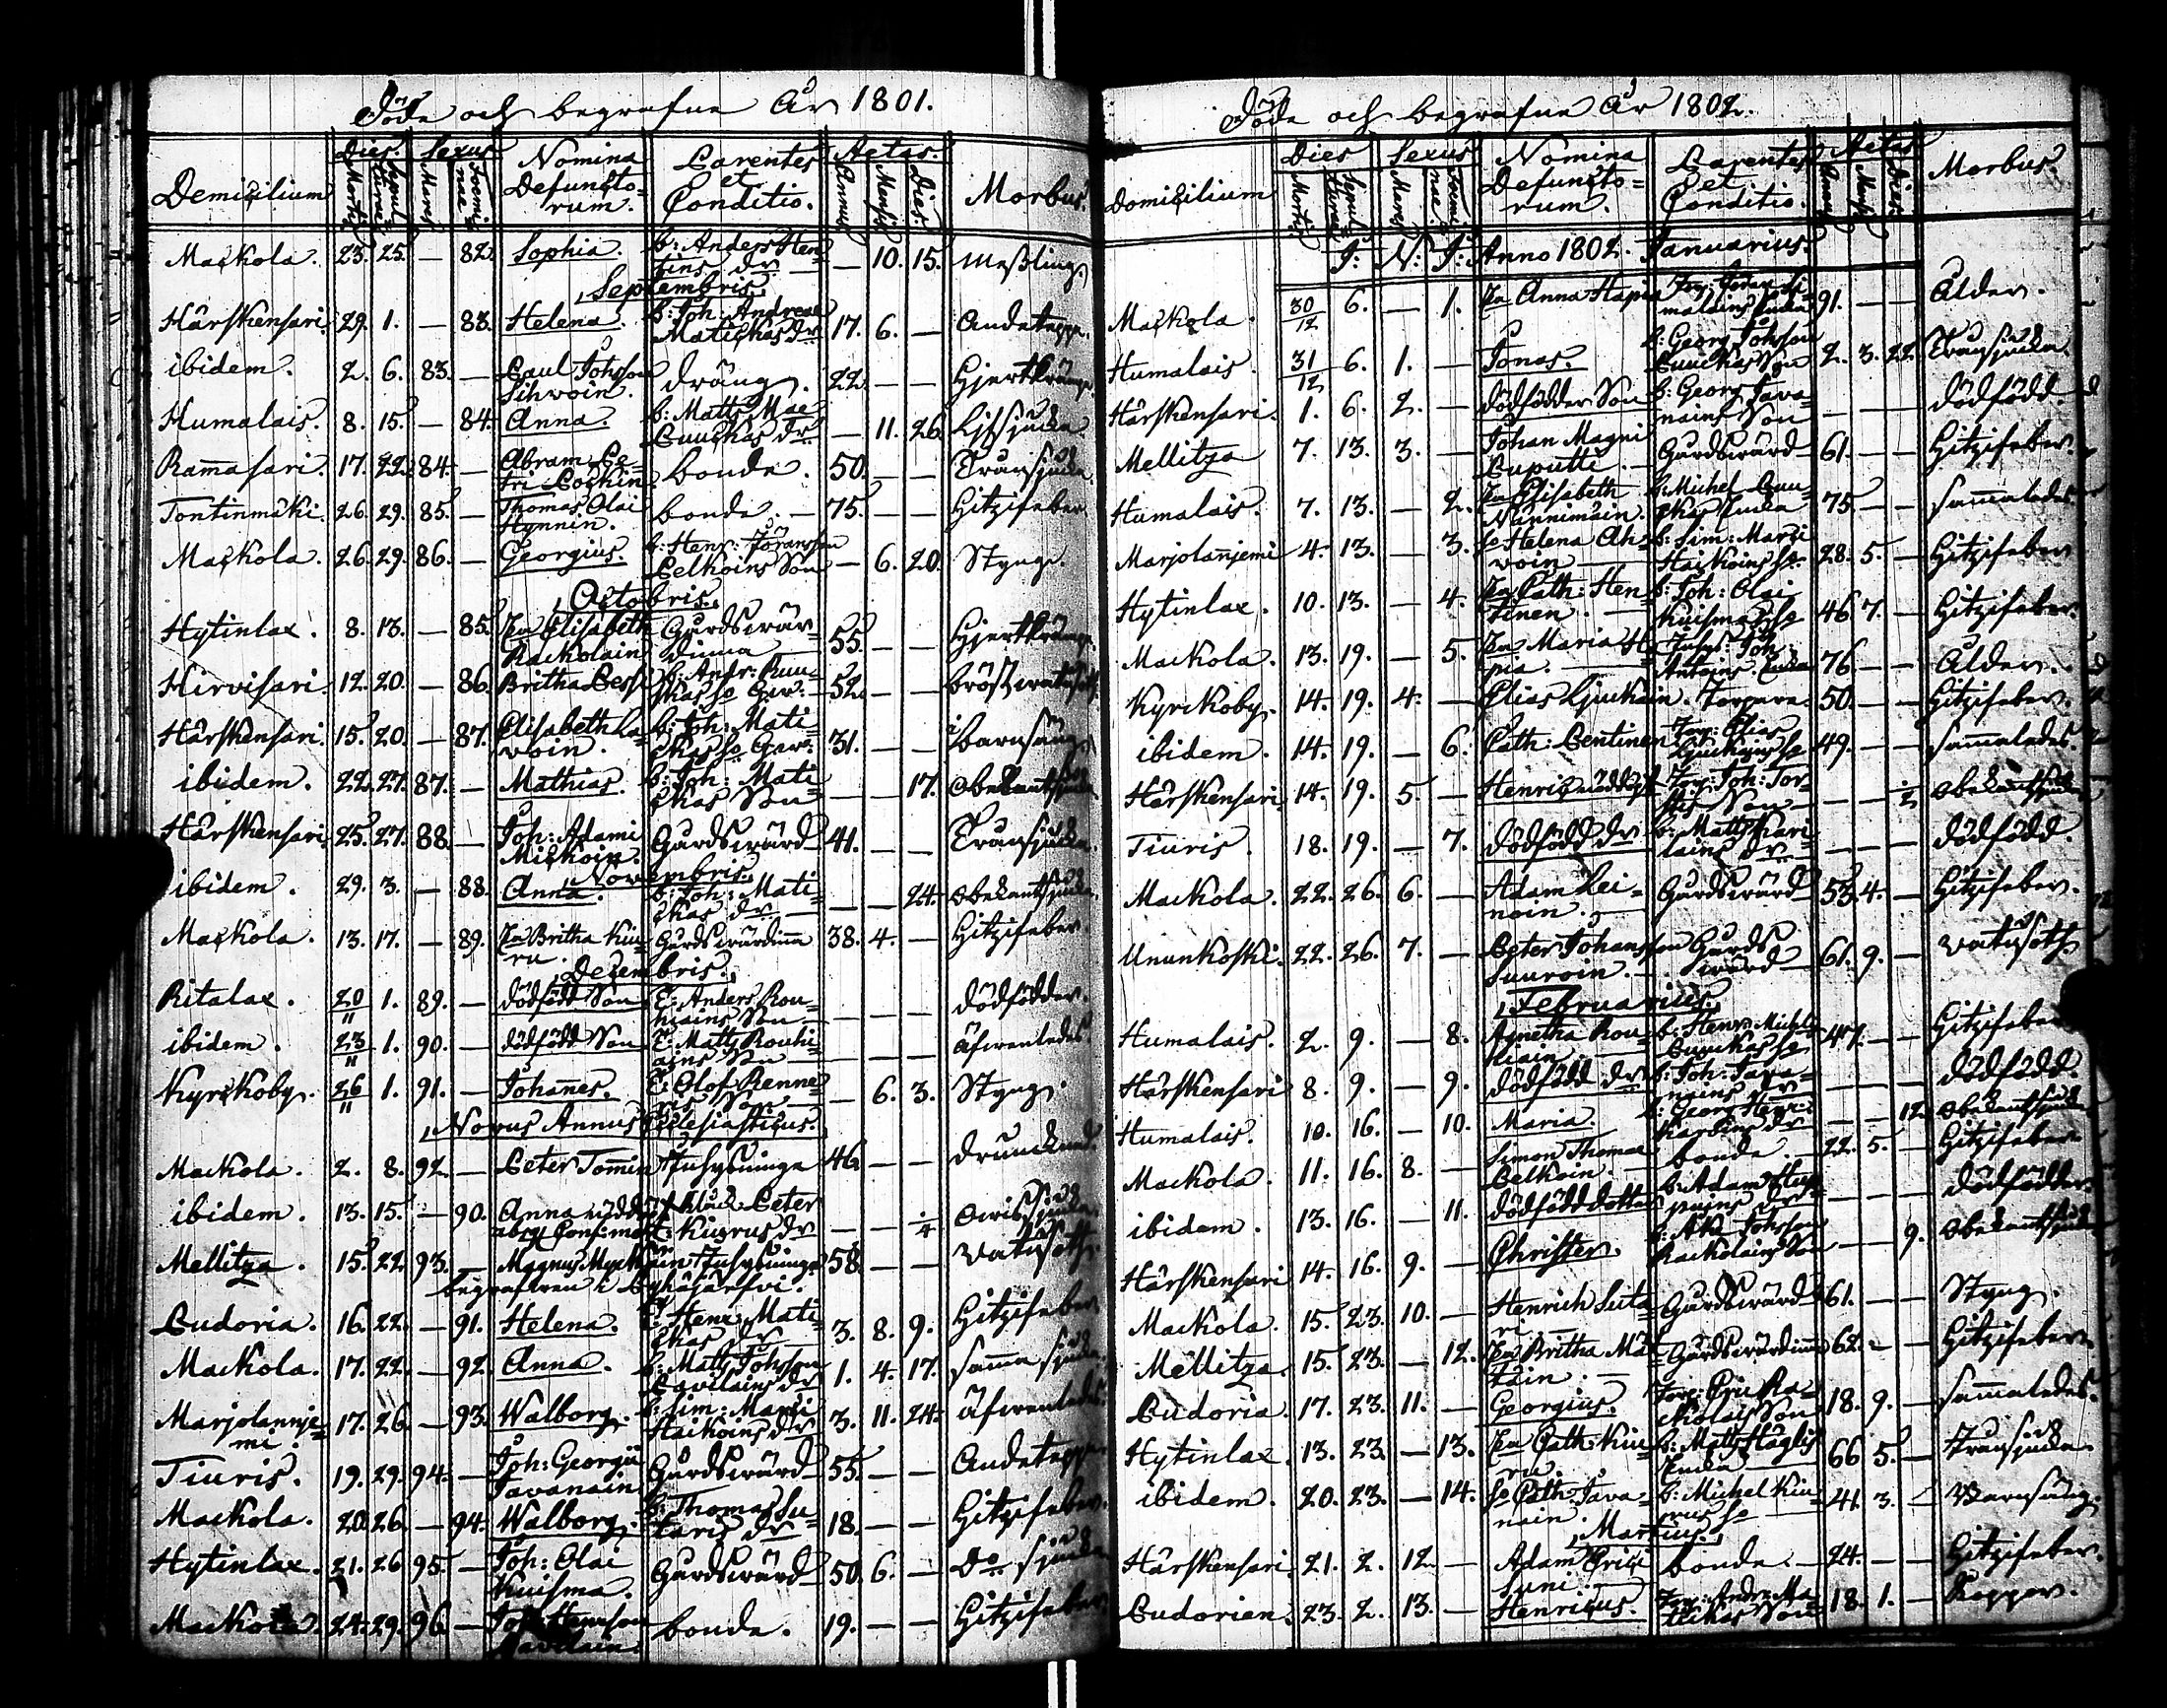 Döde och begrafne År 1801.
Demicilium Dies. Mortis Sepulturae Sexus Mares Foeminae Nomina Defunctorum. Parentes et Conditio. Aetas. Annus Mensis Dies. Morbus.
Mackola. 23. 25. — 82. Sophia. b: Anders Hen=
tins dr — 10. 15. Meßling.
Septembris.
Härskensari. 29. 1. — 83. Helena. b: Joh: Andreae
Matickas dr 17. 6. — Andetäppa.
ibidem. 2. 6. 83. — Paul Johsson
Sihvoin. dräng. 22. — —
Humalais. 8. 15. — 84. Anna. b: Matts Mae
Puuckas dr — 11. 26.
Ramasari. 17. 22. 84. — Abram Pe=
tri bonde. 50. — — Tränsjuka.
Tontinmäki. 26. 29. 85. — Thomas Olai
Hynnin. bonde. — 75. — — Hitzifeber
Mackola. 26. 29. 86. — Georgius. b: Henr: Göransson
Pelkoins Son — 6. 20. Styng.
Octobris.
Hytinlax. 8. 13. — 85. Elisabeth
Rackolain Gårdswär=
dinna 55. — —
Hirvisari. 12. 20. — 86. Britha 52. — —
Härskensari. 15. 20. — 87. Elisabeth La=
woin. b: Joh: Mati=
31. — — i barnsäng.
ibidem. 22. 27. 87. — Mathias. b: Joh: Mati
ckas Son — — 17. obekantsjuka.
Härskensari. 25. 27. 88. — Joh: Adami
Mickoin. Gårdswärd 41. — — Tränsjuka.
Novembris.
ibidem. 29. 3. — 88. Anna. b: Joh: Mati=
ckas dr — — 24. obekantsjuka.
Mackola. 13. 17. — 89. Britha Kiu=
ru. Gårdswärdinna 38. 4. — Hitzifeber
Decembris.
Ritalax. 20/11 1. 89. — dödfödd Son T: Anders Rou=
hiains Son — — — dödfödder.
ibidem. 23/11 1. 90. — dödfödd Son T: Matts Rouhi=
ains Son — — — äfwenledes
Kyrckoby. 26/11 1. 91. — Johannes. T: Olof Renne
Son — 6. 3. Styng.
Novus Annus Ecclesiasticus.
Mackola. 2. 8. 92. — Peter Tomin Inhysninge 46. — — drunknad.
ibidem. 13. 15. — 90. Anna Peter
Kiurus dr — —
Mellitza. 15. 22. 93. — Magnus Inhysninge 58. — — vatusoth.
begrafwen i
Pudoria. 16. 22. — 91. Helena. Henr: Mati=
ckas dr 3. 8. 9. Hitzifeber
Mackola. 17. 22. — 92. Anna. b: Matts Johsson
Pavilains dr 1. 4. 17. samma sjuka.
Marjolannje=
mi. 17. 26. — 93. Walborg. b: Sim: Marci
Haikoins dr 3. 11. 24. äfwenledes.
Tiuris. 19. 29. 94. — Joh: Georgii
Tavanain Gårdswärd 55. — — Andetäppa
Mackola. 20. 26. — 94. Walborg. b: Thomas Su=
taris dr 18. — — Hitzifeber.
Hytinlax. 21. 26. 95. — Joh: Olai
Kuisma. Gårdswärd 50. 6. — Do sjuka
Mackola. 24. 29. 96. — Joh: Henrsson
Pavilain. bonde. 19. — — Hitzifeber.
Döde och begrafne År 1802.
Domicilium Dies Mortis Sepulturae Sexus Mares Foeminae Nomina Defunctorum. Parentes et Conditio. Aetas Annus Mensis Dies. Morbus.
J: N: J: Anno 1802. Januarius.
Mackola. 30/12 6. — 1. Anna Hapia 91. — — Ålder.
Humalais. 31/12 6. 1. — Jonas. b: Georg Johsson
Puuckas Son 2. 3. 22. Tränsjuka.
Härskensari. 1. 6. 2. — dödfödder Son b: Georg Tava=
nains Son — — — dödfödd.
Mellitza 7. 13. 3. — Johan Magni
Puputti. Gårdswärd 61. — — Hitzifeber.
Humalais. 7. 13. — 2. Elisabeth
Nannimain. b: Michel Puu=
ckas Enka 75. — — sammaledes.
Marjolanjemi 4. 13. — 3. Helena Ah=
voin b: Sim: Marci
Haikoins 28. 5. — Hitzifeber
Hytinlax. 10. 13. — 4. Cath: Hen=
tinen. b: Joh: Olai
Kuismas 46. 7. — Hitzifeber.
Mackola. 13. 19. — 5. Maria Ha=
pia. Inhys: Joh:
Enka 76. — — Ålder.
Kyrckoby. 14. 19. 4. — Elias Ljuckain. Torpare. 50. — — Hitzifeber.
ibidem. 14. 19. — 6. Cath: Pentinen Torp: Elias
Ljuckains 49. — — sammaledes.
Härskensari. 14. 19. 5. — Henric nöddöpt Torp: Joh: Tor=
Son — — ½ obekantsjuka
Tiuris. 18. 19. — 7. dödfödd dr b: Matts Kari
lains dr — — — dödfödd.
Mackola. 22. 26. 6. — Adam Rei=
noin. Gårdswärd 53. 4. — Hitzifeber.
Ununkoski. 22. 26. 7. — Peter Johansson
Suuroin. Gårds
wärd 61. 9. — vatusoth.
Februarius.
Humalais. 2. 9. — 8. Agnetha Rou=
hiain b: Henr: Michels
Puuckas 47. — — Hitzifeber
Härskensari 8. 9. — 9. dödfödd dr b: Joh: Tava=
nains dr — — — dödfödd.
Humalais. 10. 16. — 10. Maria. b: Georg Henrici
dr — — 12. obekantsjuka
Mackola. 11. 16. 8. — Simon Thomae
Pelkoin. bonde. 22. 5. — Hitzifeber
ibidem. 13. 16. — 11. dödfödd dotter b: Adam
dr — — — dödfödder.
Härskensari 14. 16. 9. — Christer. b: Johsson
Rackolains Son — — 9. obekantsjuka
Mackola. 15. 23. 10. — Henrich Suta
ri. Gårdswärd 61. — — Styng.
Mellitza. 15. 23. — 12. Britha Mat
tain. Gårdswärdinna 62. — — Hitzifeber
Pudoria. 17. 23. 11. — Georgius. Torp: Eric Ra=
ckolais Son 18. 9. — sammaledes.
Hytinlax. 13. 23. — 13. Cath: Kiu
ru. b: Matts
Enka 66. 5. — Tränsjuka.
ibidem. 20. 23. — 14. Cath: Tava=
nain. b: Michel Kiu=
rus 41. 3. — Barnsäng.
Martius.
Härskensari. 21. 2. 12. — Adam Erici
Suni. bonde. — 24. — — Hitzifeber.
Pudorien. 23. 2. 13. — Henricus. Torp: Andr: Ma=
tickas Son 18. 1. — Koppor.